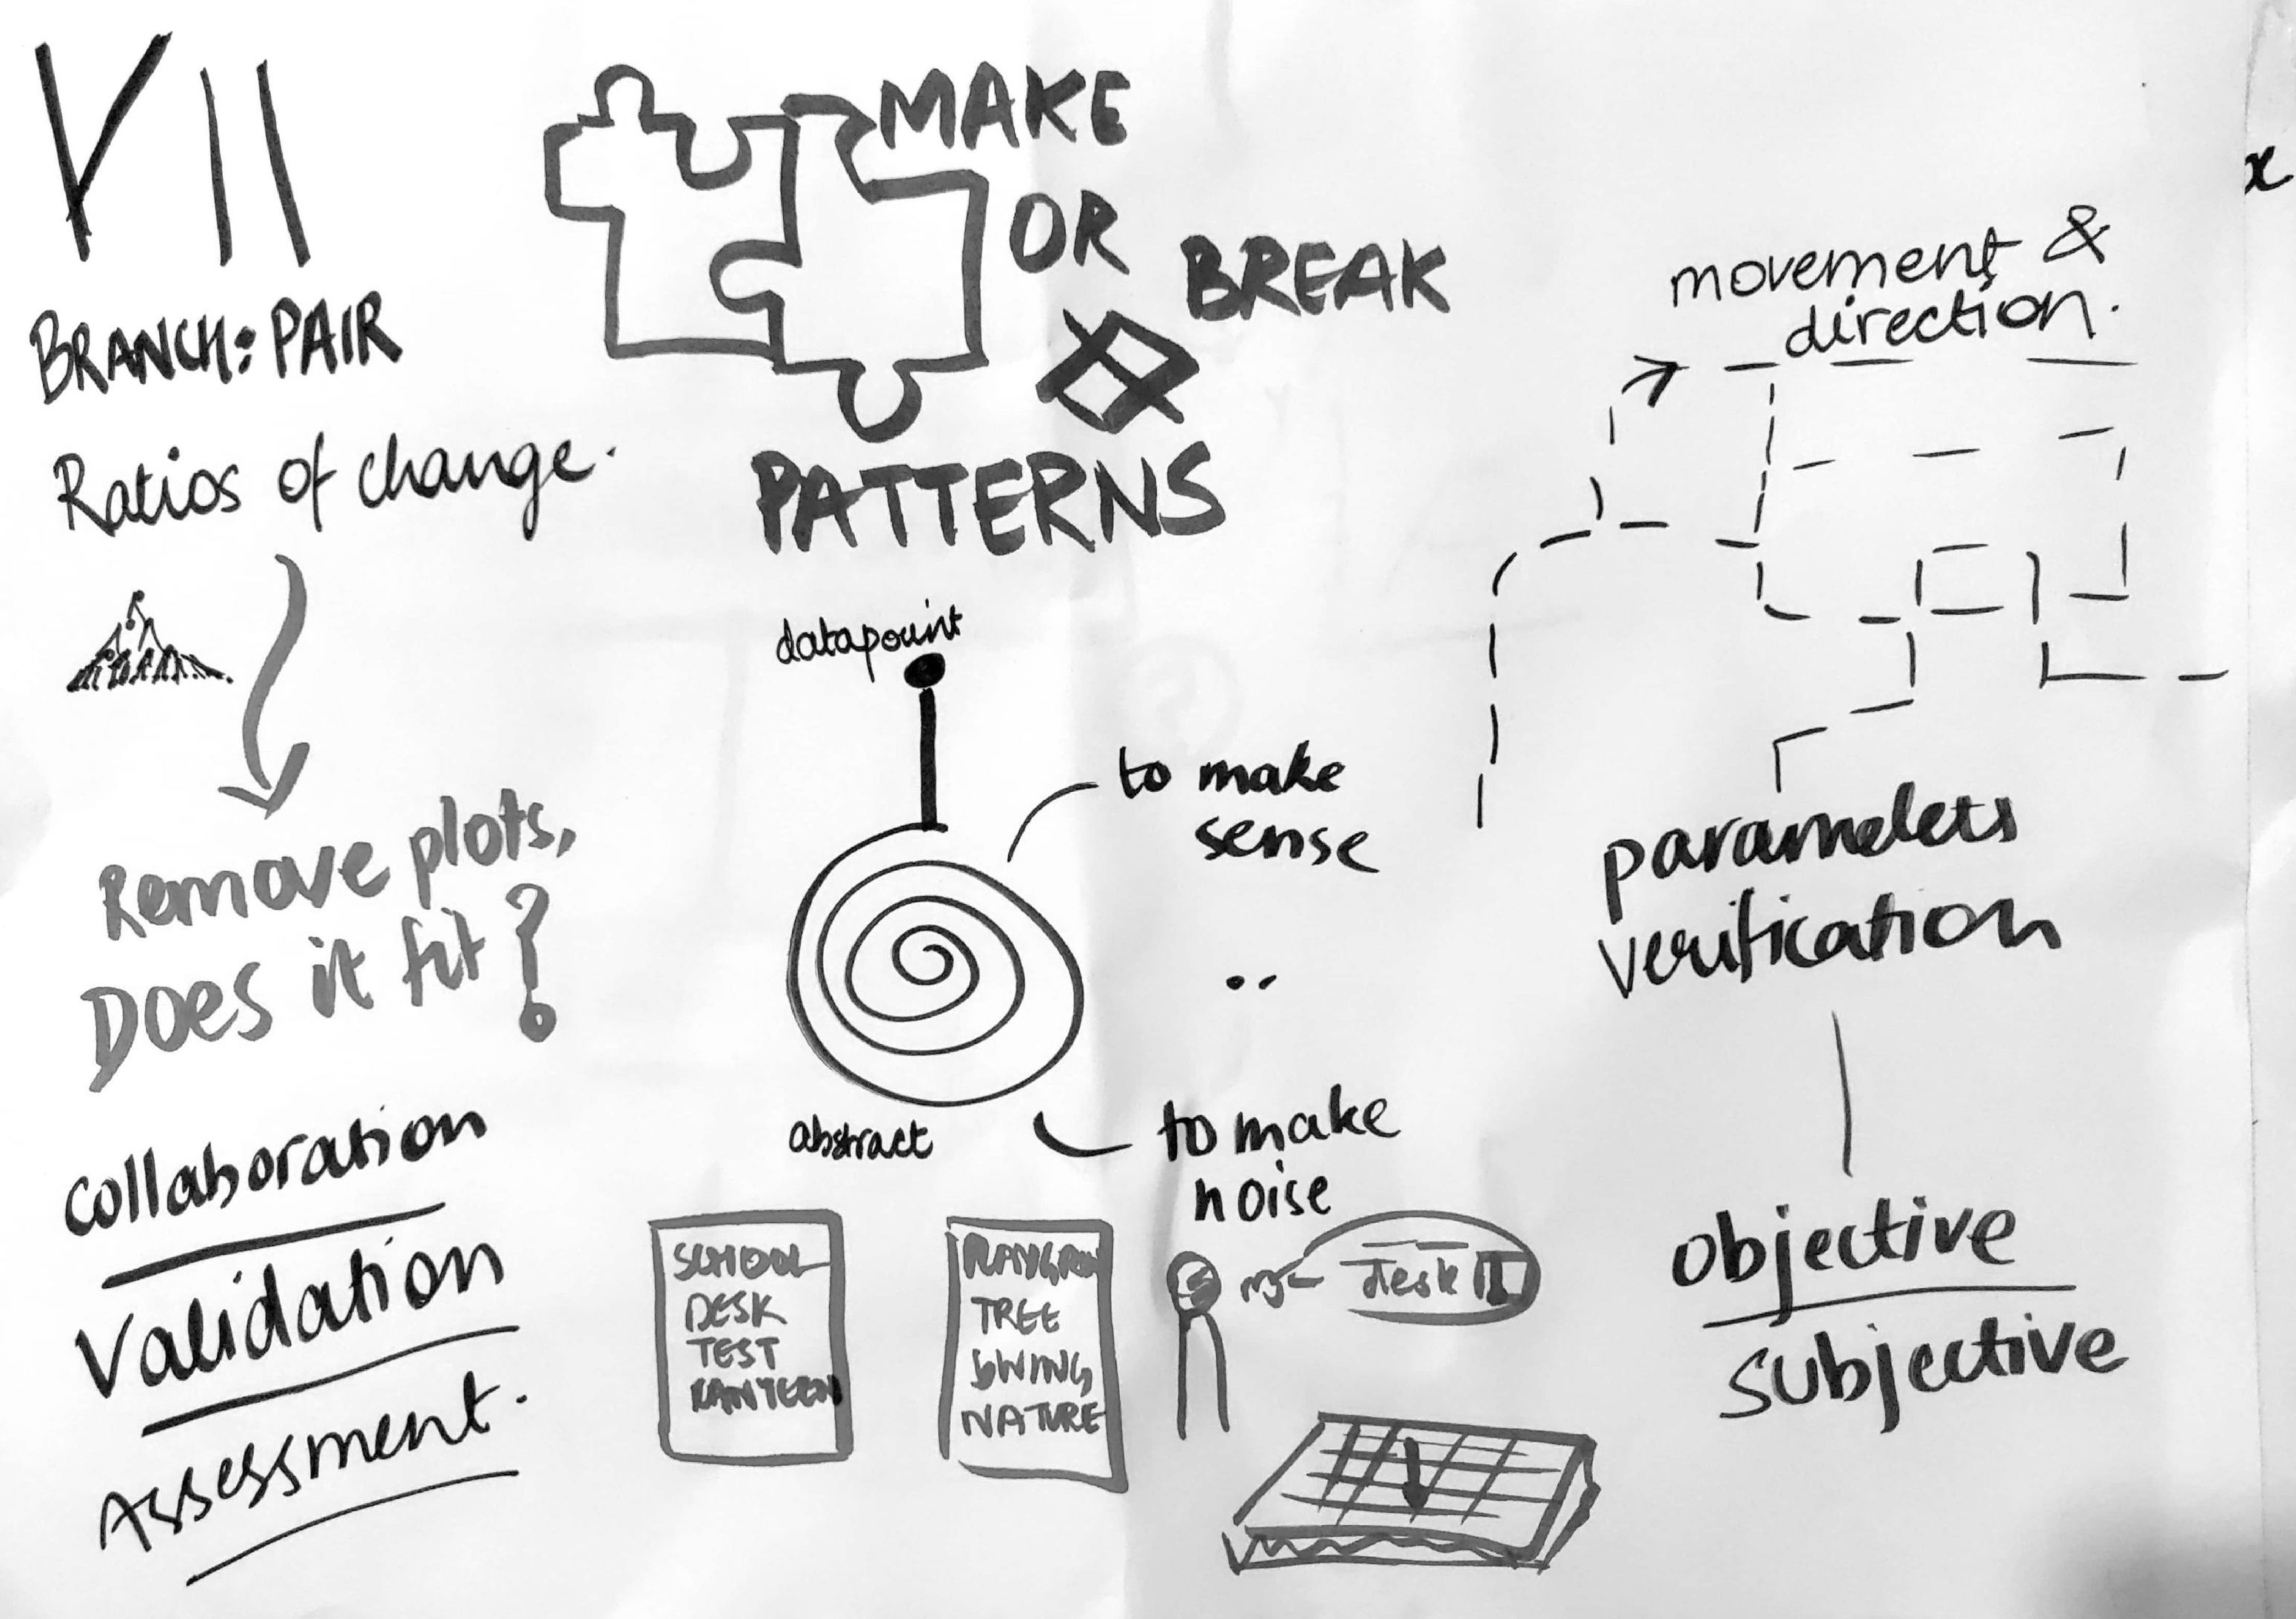 VII
BRANCH: PAIR
Ratios of change.
Remove plots,
Does it fit?
collaboration
Validation
Assessment.
MAKE
OR
BREAK
PATTERNS
datapoint
to make
sense
abstract
to make
noise
SCHOOL
DESK
TEST
KANTEEN
TREE
SWING
NATURE
desk
movement &
direction.
parameters
verification
objective
subjective
x